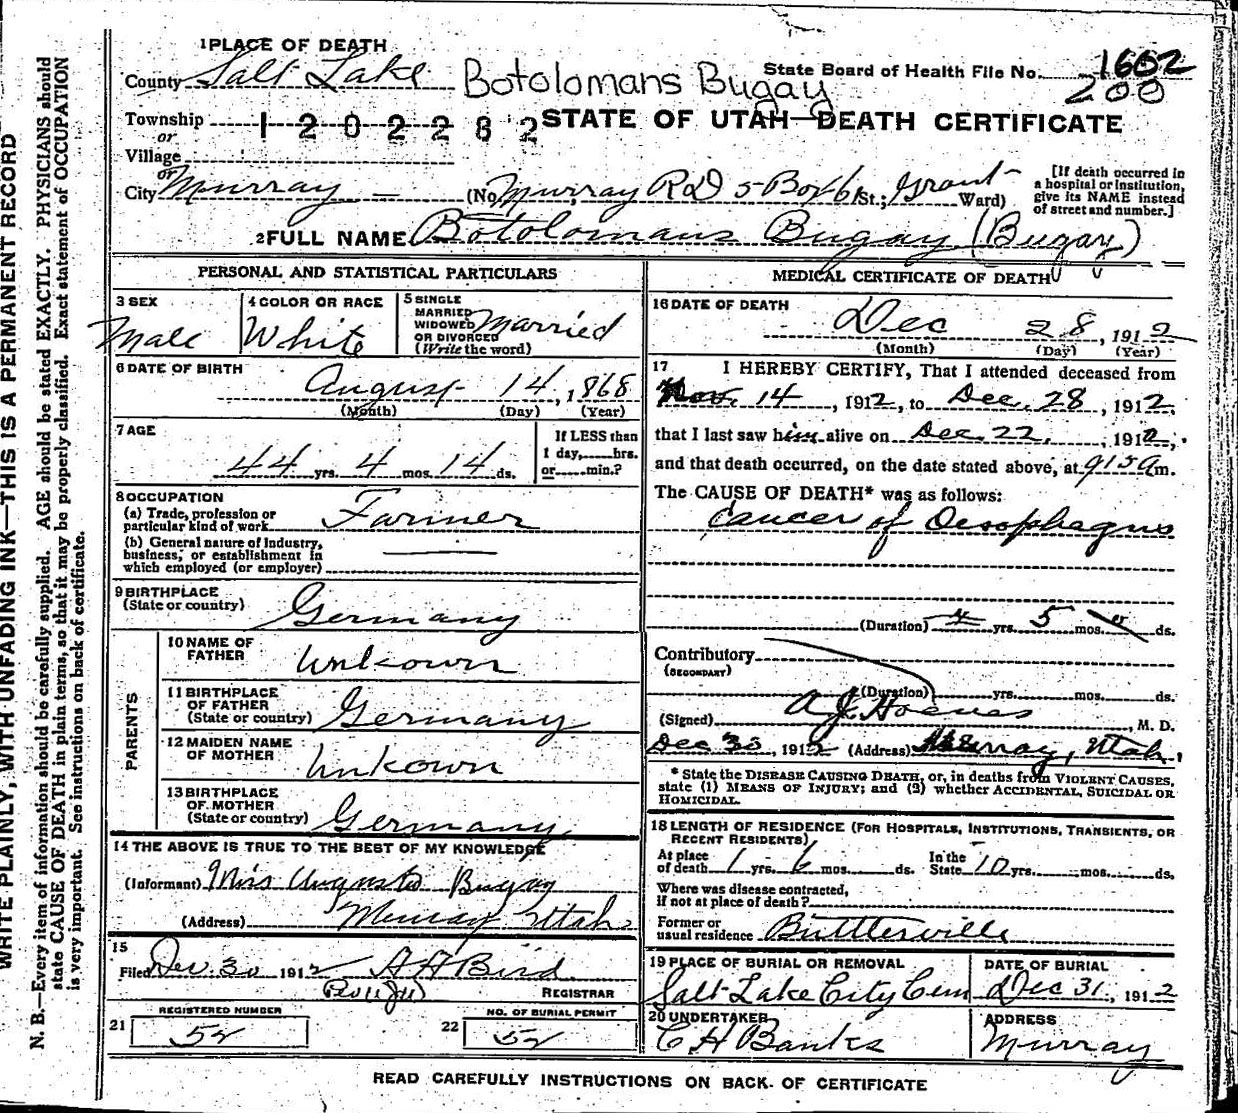 WRITE PLAINLY, WITH UNFADING INK—THIS IS A PERMANENT RECORD
N. B.—Every item of information should be carefully supplied. AGE should be stated EXACTLY. PHYSICIANS should
state CAUSE OF DEATH in plain terms, so that it may be properly classified. Exact statement of OCCUPATION
is very important. See instructions on back of certificate.
1 PLACE OF DEATH
County Salt Lake Botolomans Bugay State Board of Health File No. 1602
200
Township 1202282 STATE OF UTAH—DEATH CERTIFICATE
or
Village
or
City Murray — (No. Murray RD 5 Box 61 St.; Grant Ward)
[If death occurred in
a hospital or institution,
give its NAME instead
of street and number.]
2 FULL NAME Botolomans Bugay (Bugay)
PERSONAL AND STATISTICAL PARTICULARS
3 SEX
Male
4 COLOR OR RACE
White
5 SINGLE
MARRIED
WIDOWED
OR DIVORCED
(Write the word)
Married
6 DATE OF BIRTH
August 14, 1868
(Month) (Day) (Year)
7 AGE
44 yrs. 4 mos. 14 ds.
If LESS than
1 day, hrs.
or min.?
8 OCCUPATION
(a) Trade, profession or
particular kind of work Farmer
(b) General nature of Industry,
business, or establishment in
which employed (or employer)
9 BIRTHPLACE
(State or country) Germany
PARENTS
10 NAME OF
FATHER Unkown
11 BIRTHPLACE
OF FATHER
(State or country) Germany
12 MAIDEN NAME
OF MOTHER Unkown
13 BIRTHPLACE
OF MOTHER
(State or country) Germany
14 THE ABOVE IS TRUE TO THE BEST OF MY KNOWLEDGE
(Informant) Mrs Augusta Bugay
(Address) Murray Utah
15
Filed Dec. 30 1912 A H Bird
REGISTRAR
21 REGISTERED NUMBER
52
22 NO. OF BURIAL PERMIT
52
MEDICAL CERTIFICATE OF DEATH
16 DATE OF DEATH
Dec 28, 1912
(Month) (Day) (Year)
17 I HEREBY CERTIFY, That I attended deceased from
Nov. 14, 1912, to Dec. 28, 1912,
that I last saw him alive on Dec. 22, 1912,
and that death occurred, on the date stated above, at 915 a m.
The CAUSE OF DEATH* was as follows:
Cancer of Oesophagus
(Duration) yrs. 5 mos. ds.
Contributory
(SECONDARY)
(Duration) yrs. mos. ds.
(Signed) M. D.
Dec 30, 1912 (Address) Murray, Utah,
* State the DISEASE CAUSING DEATH, or, in deaths from VIOLENT CAUSES,
state (1) MEANS OF INJURY; and (2) whether ACCIDENTAL, SUICIDAL OR
HOMICIDAL.
18 LENGTH OF RESIDENCE (FOR HOSPITALS, INSTITUTIONS, TRANSIENTS, OR
RECENT RESIDENTS)
At place
of death 1 yrs. 6 mos. ds.
In the
State 10 yrs. mos. ds.
Where was disease contracted,
If not at place of death?
Former or
usual residence Buttlerville
19 PLACE OF BURIAL OR REMOVAL
Salt Lake City Cem
DATE OF BURIAL
Dec 31, 1912
20 UNDERTAKER
C H Banks
ADDRESS
Murray
READ CAREFULLY INSTRUCTIONS ON BACK OF CERTIFICATE